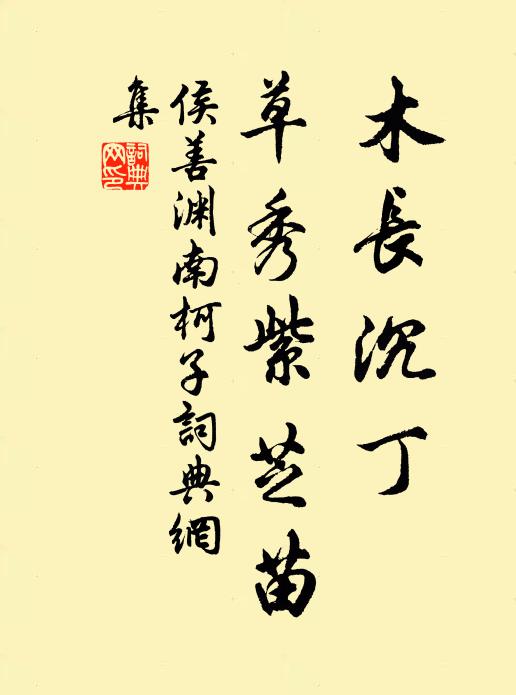 木長沉丁
草秀紫芝苗
侯善渊南柯子詞典網
集
詞典網印